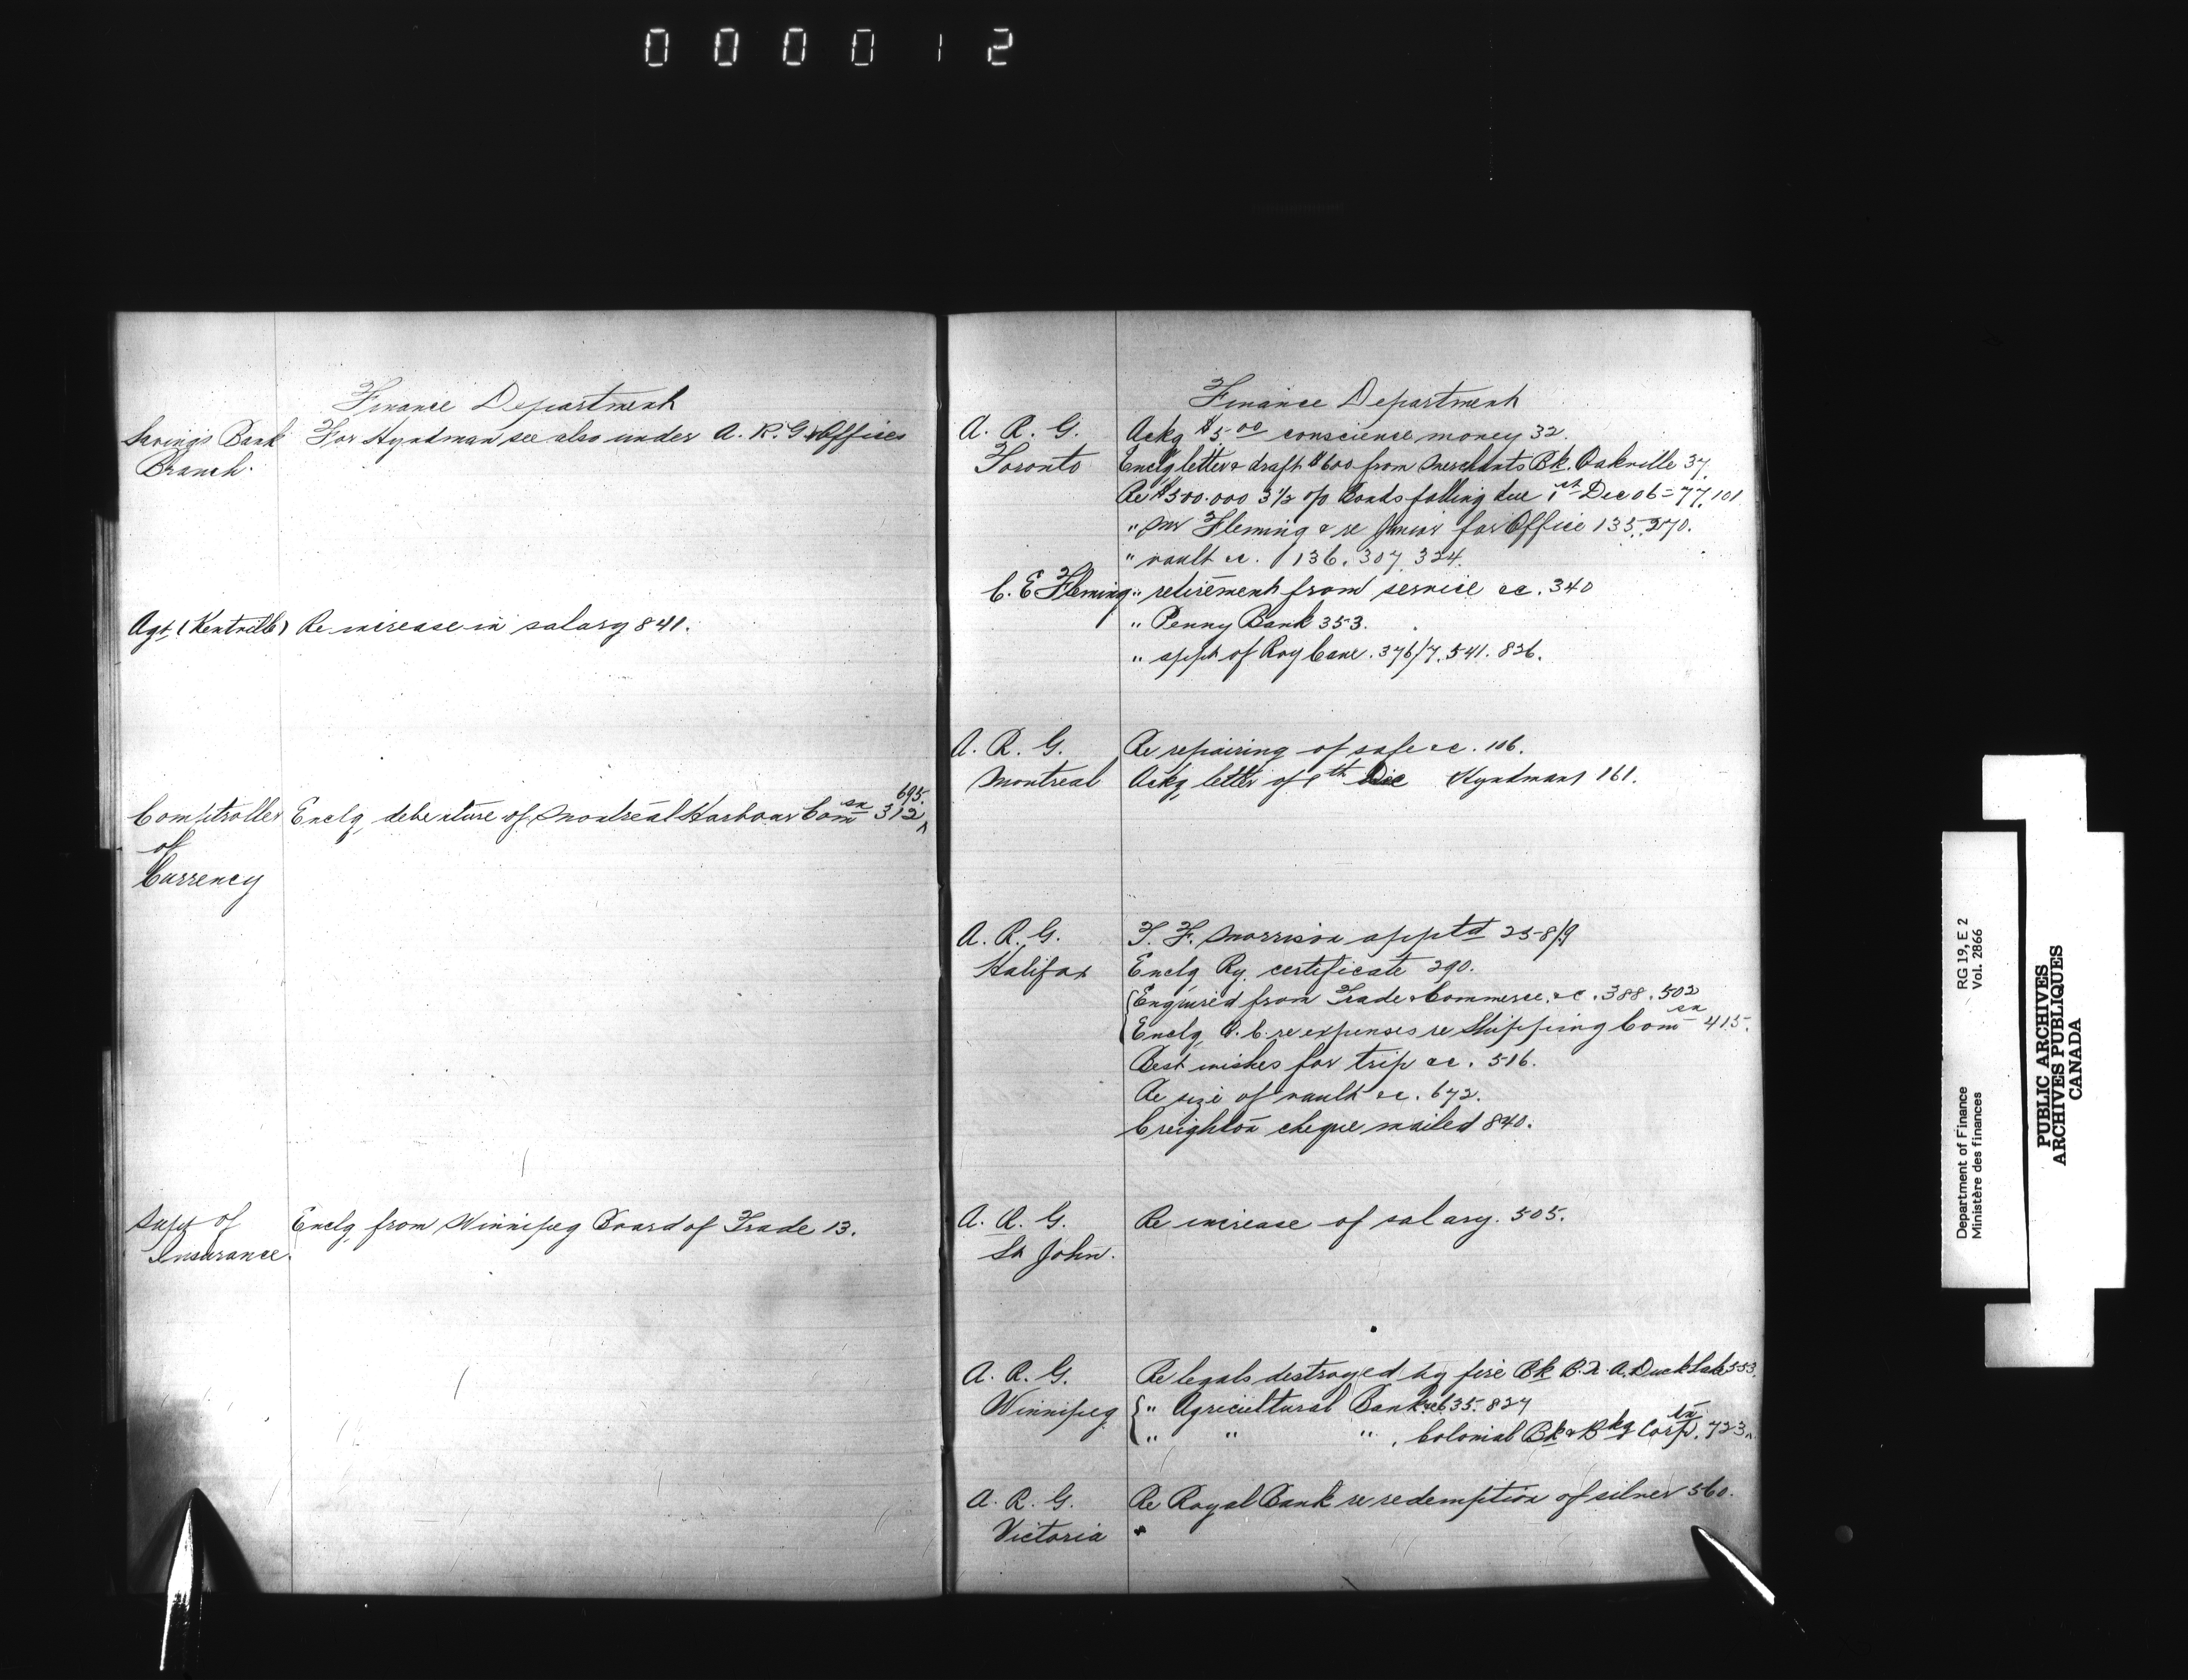 000012
Finance Department
Savings Bank For Hyndman see also under A. R. G's Offices
Branch.
Agt (Kentville) Re increase in salary 841.
695.
Comptroller Enclg debenture of Montreal Harbour Comsn 312
of
Currency
Supt of Enclg from Winnipeg Board of Trade 13.
Insurance.
Finance Department
A. R. G. Ackg $5.00 conscience money 32.
Toronto Enclg letter & draft $600 from Merchants Bk. Oakville 37.
Re $500.000 3½ o/o Bonds falling due 1st Dec 06 = 77, 101
" Mr Fleming & re Junior for Office 135, 270.
" vault &c. 136. 307. 324.
C. E Fleming " retirement from service &c. 340
" Penny Bank 353.
" appt of Roy Cane. 376/7. 541. 826.
A. R. G. Re repairing of safe &c. 106.
Montreal Ackg letter of 9th Dec Hyndman 161.
A. R. G. T. F. Morrison apptd 258/9
Halifax Enclg Ry. certificate 290.
Enquired from Trade & Commerce. &c. 388. 502
Enclg O. C. re expenses re Shipping Comsn 415.
Best wishes for trip &c. 516.
Re size of vault &c. 672.
Creighton cheque mailed 840.
A. R. G. Re increase of salary. 505.
St John.
A. R. G. Re legals destroyed by fire Bk B. N. A. Duck Lake 553.
Winnipeg " Agricultural Bank 635. 824
" " " Colonial Bk & Bkg Corptn. 723
A. R. G. Re Royal Bank re redemption of silver 560.
Victoria
Department of Finance RG 19, E 2
Ministère des finances Vol. 2866
PUBLIC ARCHIVES
ARCHIVES PUBLIQUES
CANADA